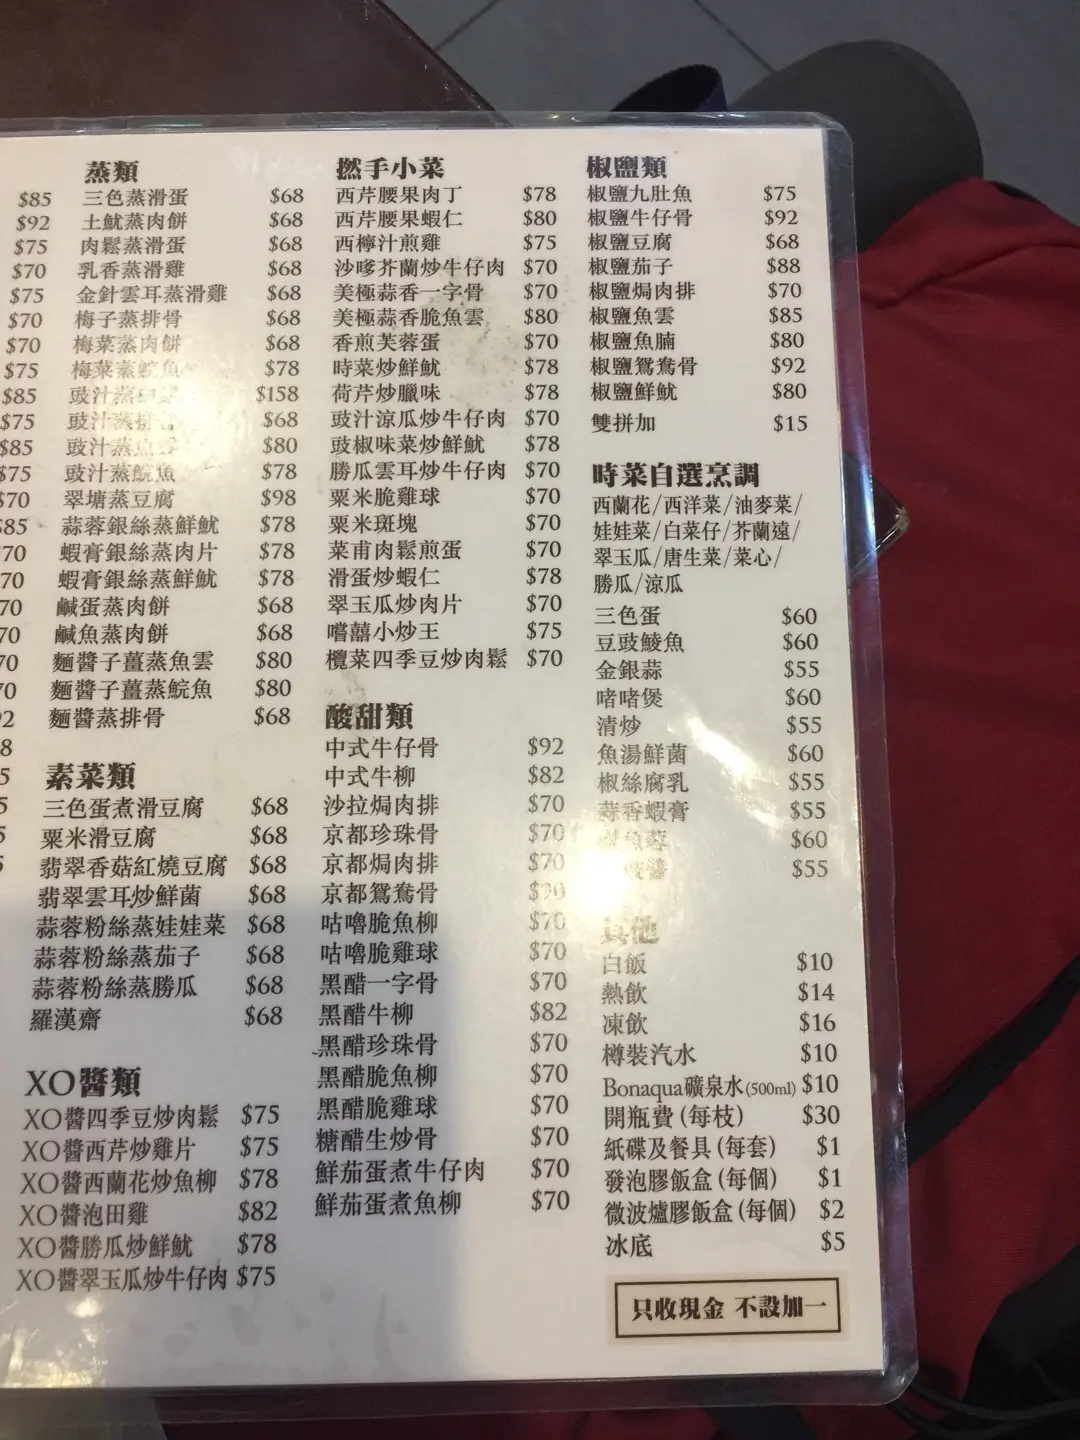 $85
$92
$75
$70
$75
$70
$70
$75
$85
$75
$85
$75
$70
$85
70
70
70
70
70
70
蒸類
三色蒸滑蛋 $68
土魷蒸肉餅 $68
肉鬆蒸滑蛋 $68
乳香蒸滑雞 $68
金針雲耳蒸滑雞 $68
梅子蒸排骨 $68
梅菜蒸肉餅 $68
梅菜蒸鯇魚 $78
豉汁蒸 $158
豉汁蒸排骨 $68
豉汁蒸魚雲 $80
豉汁蒸鯇魚 $78
翠塘蒸豆腐 $98
蒜蓉銀絲蒸鮮魷 $78
蝦膏銀絲蒸肉片 $78
蝦膏銀絲蒸鮮魷 $78
鹹蛋蒸肉餅 $68
鹹魚蒸肉餅 $68
麵醬子薑蒸魚雲 $80
麵醬子薑蒸鯇魚 $80
麵醬蒸排骨 $68
素菜類
三色蛋煮滑豆腐 $68
粟米滑豆腐 $68
翡翠香菇紅燒豆腐 $68
翡翠雲耳炒鮮菌 $68
蒜蓉粉絲蒸娃娃菜 $68
蒜蓉粉絲蒸茄子 $68
蒜蓉粉絲蒸勝瓜 $68
羅漢齋 $68
XO醬類
XO醬四季豆炒肉鬆 $75
XO醬西芹炒雞片 $75
XO醬西蘭花炒魚柳 $78
XO醬泡田雞 $82
XO醬勝瓜炒鮮魷 $78
XO醬翠玉瓜炒牛仔肉 $75
撚手小菜
西芹腰果肉丁 $78
西芹腰果蝦仁 $80
西檸汁煎雞 $75
沙嗲芥蘭炒牛仔肉 $70
美極蒜香一字骨 $70
美極蒜香脆魚雲 $80
香煎芙蓉蛋 $70
時菜炒鮮魷 $78
荷芹炒臘味 $78
豉汁涼瓜炒牛仔肉 $70
豉椒味菜炒鮮魷 $78
勝瓜雲耳炒牛仔肉 $70
粟米脆雞球 $70
粟米斑塊 $70
菜甫肉鬆煎蛋 $70
滑蛋炒蝦仁 $78
翠玉瓜炒肉片 $70
嚐囍小炒王 $75
欖菜四季豆炒肉鬆 $70
酸甜類
中式牛仔骨 $92
中式牛柳 $82
沙拉焗肉排 $70
京都珍珠骨 $70
京都焗肉排 $70
京都鴛鴦骨 $90
咕嚕脆魚柳 $70
咕嚕脆雞球 $70
黑醋一字骨 $70
黑醋牛柳 $82
黑醋珍珠骨 $70
黑醋脆魚柳 $70
黑醋脆雞球 $70
糖醋生炒骨 $70
鮮茄蛋煮牛仔肉 $70
鮮茄蛋煮魚柳 $70
椒鹽類
椒鹽九肚魚 $75
椒鹽牛仔骨 $92
椒鹽豆腐 $68
椒鹽茄子 $88
椒鹽焗肉排 $70
椒鹽魚雲 $85
椒鹽魚腩 $80
椒鹽鴛鴦骨 $92
椒鹽鮮魷 $80
雙拼加 $15
時菜自選烹調
西蘭花/西洋菜/油麥菜/
娃娃菜/白菜仔/芥蘭遠/
翠玉瓜/唐生菜/菜心/
勝瓜/涼瓜
三色蛋 $60
豆豉鯪魚 $60
金銀蒜 $55
啫啫煲 $60
清炒 $55
魚湯鮮菌 $60
椒絲腐乳 $55
蒜香蝦膏 $55
魚蓉 $60
豉醬 $55
其他
白飯 $10
熱飲 $14
凍飲 $16
樽裝汽水 $10
Bonaqua礦泉水(500ml) $10
開瓶費(每枝) $30
紙碟及餐具(每套) $1
發泡膠飯盒(每個) $1
微波爐膠飯盒(每個) $2
冰底 $5
只收現金 不設加一